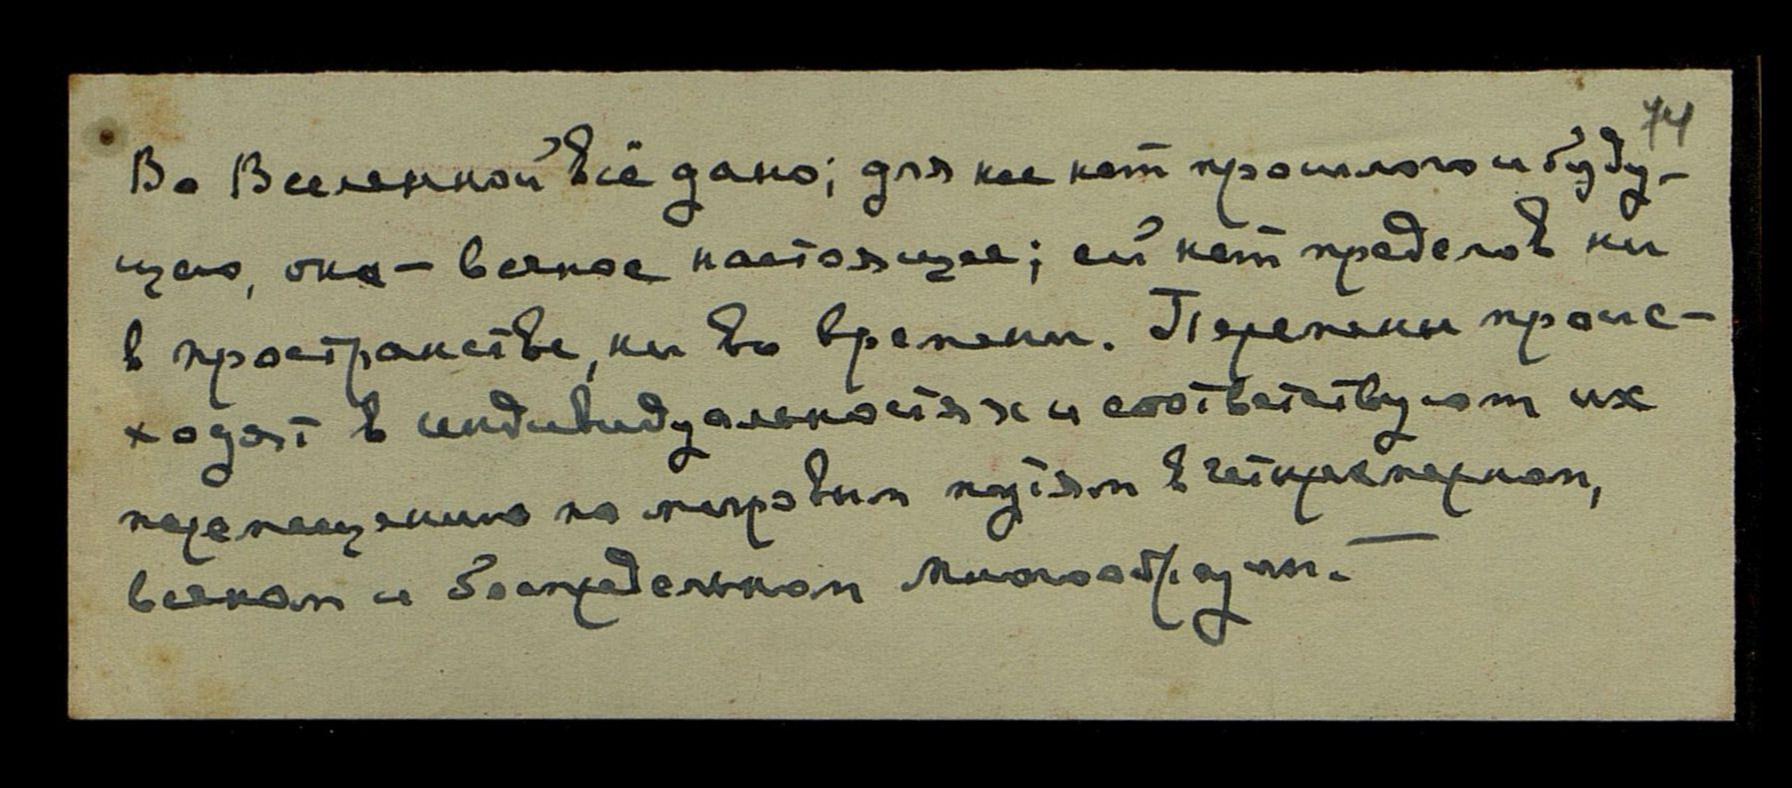 74
Во Вселенной всё дано; для нее нет прошлого и буду-
щего, она — вечное настоящее; ей нет пределов ни
в пространстве, ни во времени. Перемены проис-
ходят в индивидуальностях и соответствуют их
перемещению по мировым путям в четырехмерном,
вечном и беспредельном многообразии. —